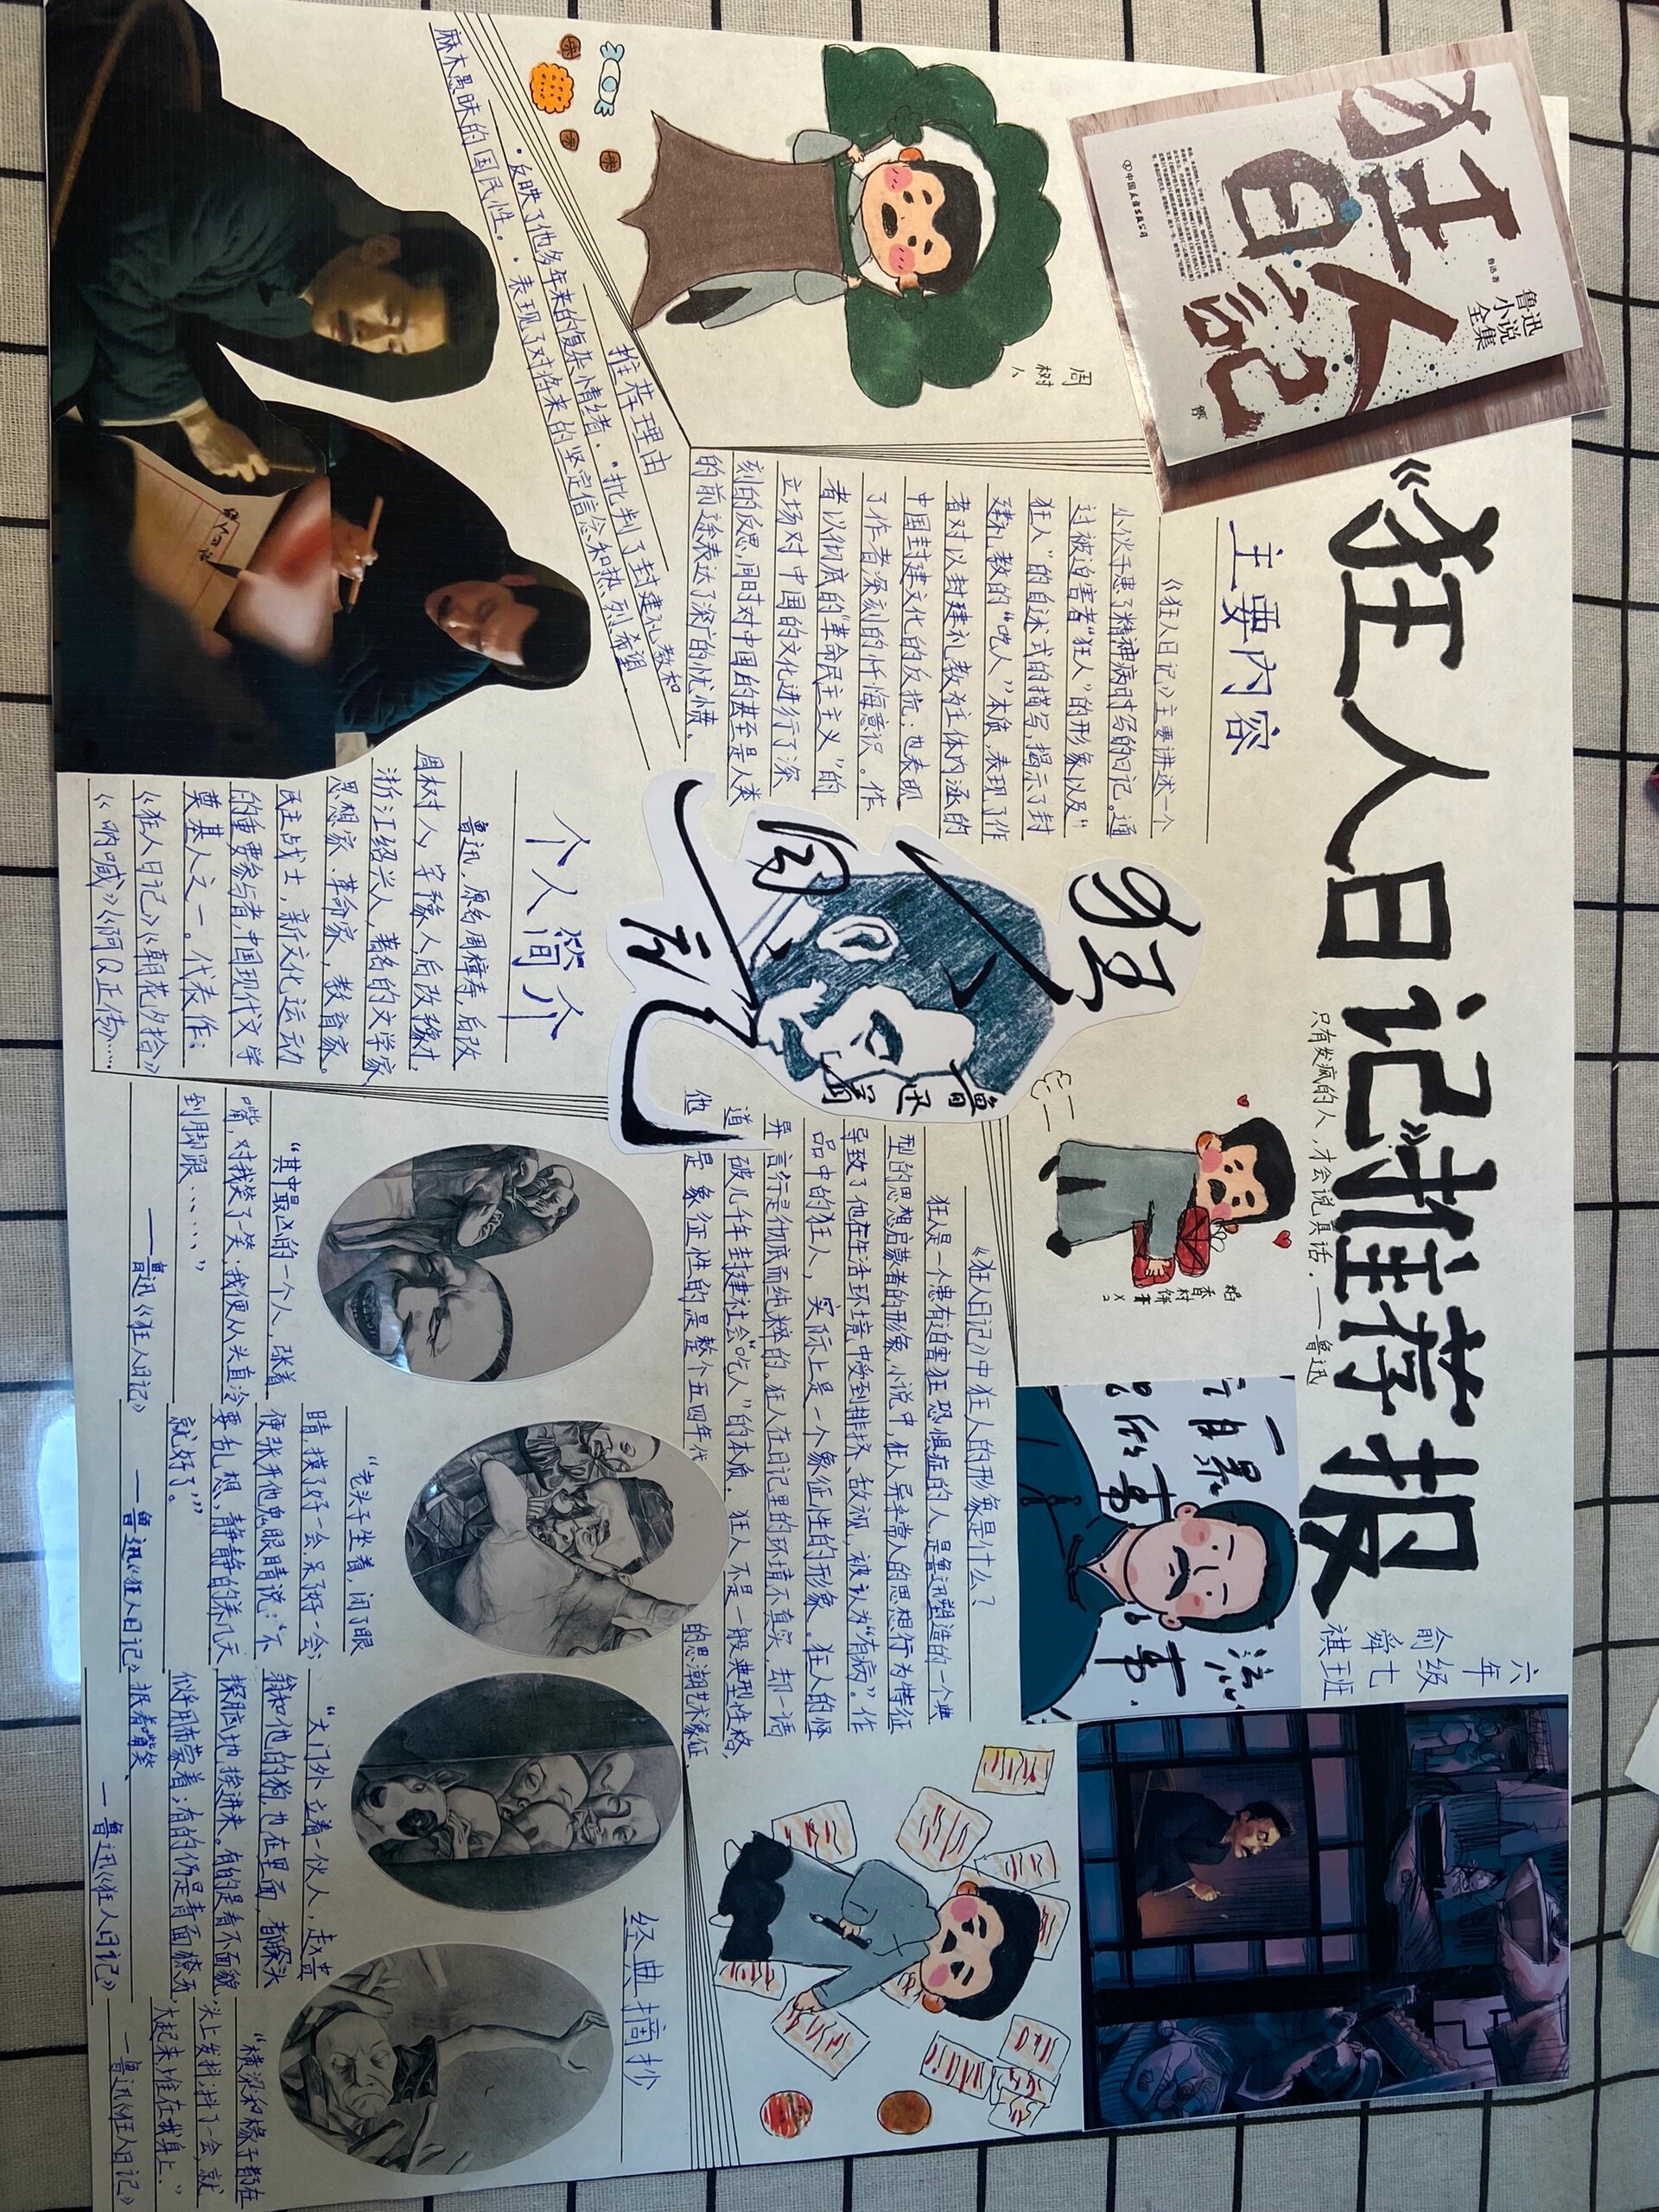 《狂人日记》推荐报
六年
级
七班
俞舜祺
只有发疯的人，才会说真话．——鲁迅
狂人日记
鲁迅
小说
全集
鲁迅 著
周树人
稻香村饼×2
主要内容
《狂人日记》主要讲述一个
小伙子患了精神病时写的日记。通
过被迫害者“狂人”的形象以及“
狂人”的自述式的描写，揭示了封
建礼教的“吃人”本质，表现了作
者对以封建礼教为主体内涵的
中国封建文化的反抗；也表现
了作者深刻的忏悔意识。作
者以彻底的“革命民主主义”的
立场对中国的文化进行了深
刻的反思，同时对中国的甚至是人类
的前途表达了深广的忧愤。
推荐理由
·批判了封建礼教和
麻木愚昧的国民性。
·反映了他多年来的复杂情绪．
·表现了对将来的坚定信念和热烈希望．
狂人日记
鲁迅
个人简介
鲁迅，原名周樟寿，后改
周树人，字豫人，后改豫才，
浙江绍兴人，著名的文学家
思想家、革命家，教育家。
民主战士，新文化运动
的重要参与者，中国现代文学
奠基人之一。代表作：
《狂人日记》《朝花夕拾》
《呐喊》《阿Q正传》……
《狂人日记》中狂人的形象是什么？
狂人是一个患有迫害狂恐惧症的人，是鲁迅塑造的一个典
型的思想启蒙者的形象，小说中，狂人异乎常人的思想行为特征
导致了他在生活环境中受到排挤、敌视，被认为“有病”。作
品中的狂人，实际上是一个象征性的形象。狂人的怪
异言行是彻底而纯粹的．狂人在日记里的环境不真实，却一语
道破几千年封建社会“吃人”的本质．狂人不是一般典型性格，
他是象征性的是整个五四年代的思潮艺术象征．
经典摘抄
“其中最凶的一个人，张着
嘴，对我笑了一笑；我便从头直冷
到脚跟……”
——鲁迅《狂人日记》
“老头子坐着，闭了眼
睛，摸了好一会，呆了好一会；
便张开他鬼眼睛说：‘不
要乱想，静静的养几天
就好了。’”
——鲁迅《狂人日记》
“大门外立着一伙人，赵贵
翁和他的狗，也在里面，都探头
探脑地，挨进来。有的是看不面貌，
似乎用布蒙着；有的仍是青面獠牙，
抿着嘴笑、
—鲁迅《狂人日记》
“横梁和椽子都在
头上发抖；抖了一会，就
大起来，堆在我身上．”
—鲁迅《狂人日记》